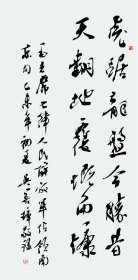 虎踞龍盤今勝昔
天翻地覆慨而慷
毛主席七律人民解放軍佔領南
京句乙未年初夏吳善璋